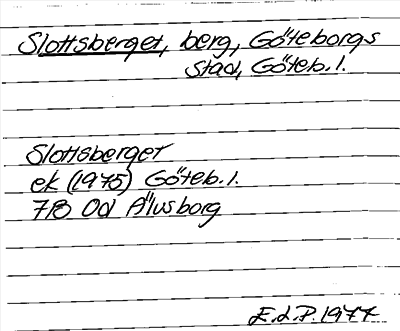 Slottsberget, berg, Göteborgs
stad, Göteb. l.
Slottsberget
ek (1975) Göteb. l.
7B Od Älvsborg
E.L.P. 1977